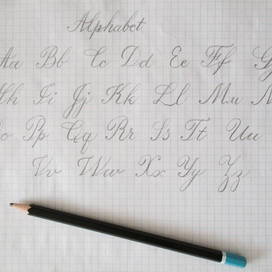 Alphabet
Aa Bb Cc Dd Ee Ff
Ii Jj Kk Ll Mm
Pp Qq Rr Ss Tt Uu
Vv Ww Xx Yy Zz